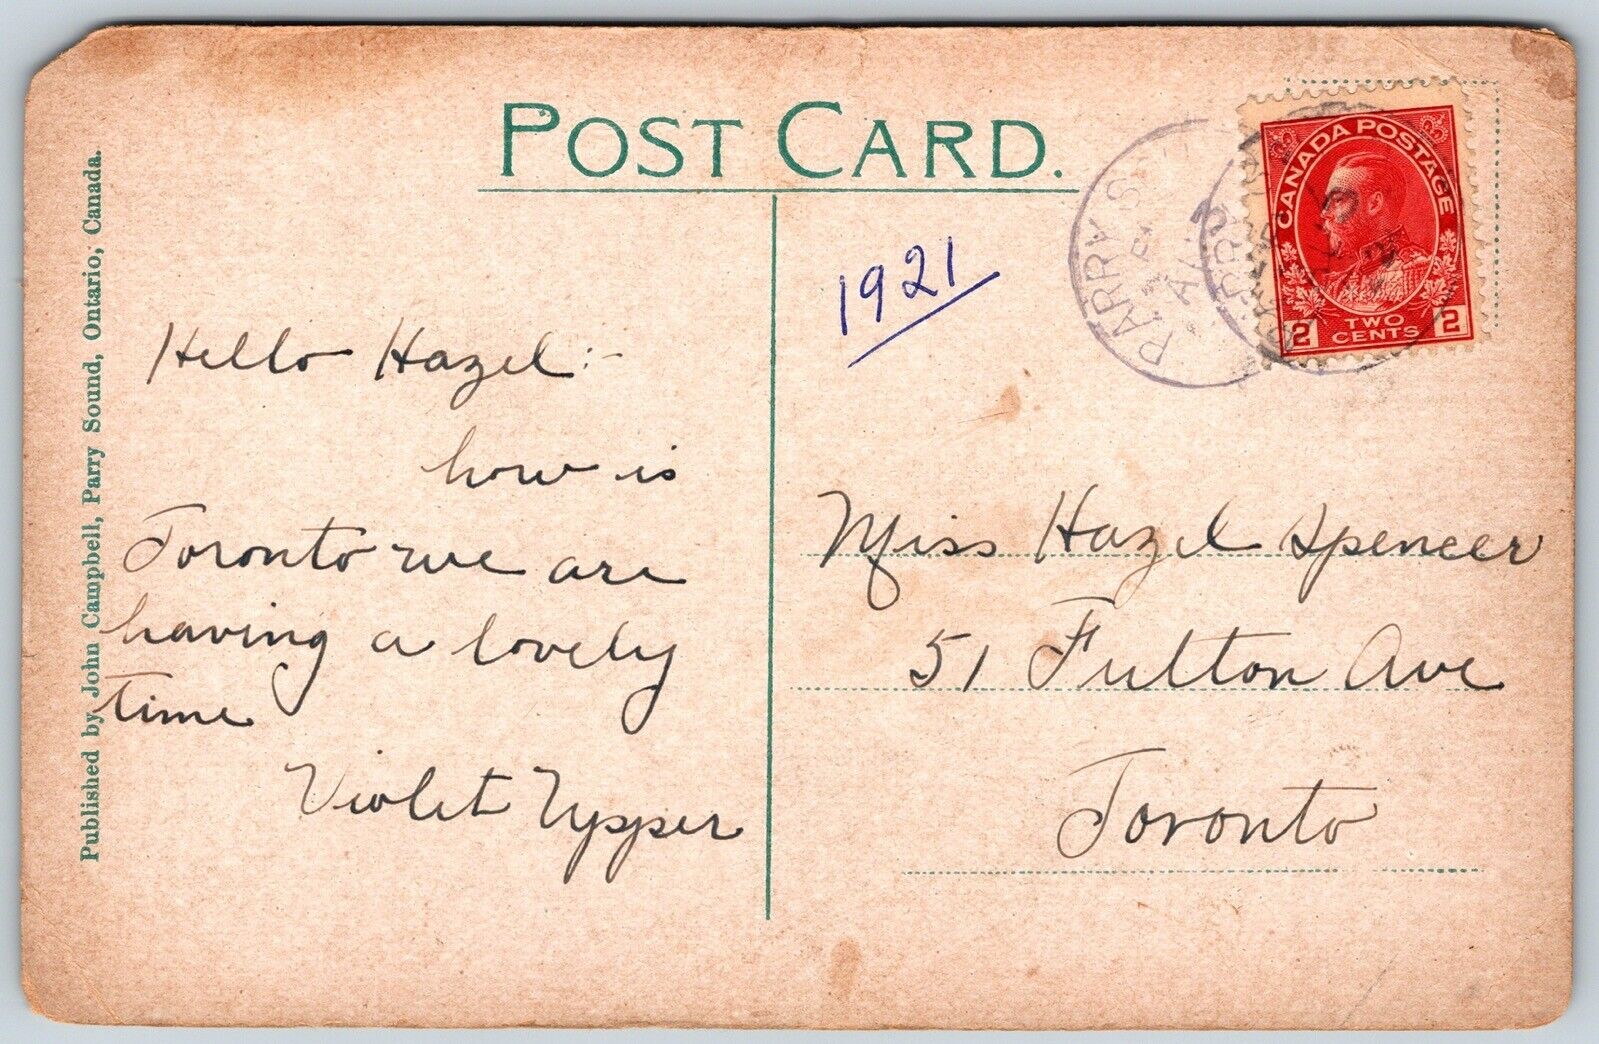 POST CARD.
Published by John Campbell, Parry Sound, Ontario, Canada.
1921
CANADA POSTAGE
2 TWO CENTS 2
PARRY
Hello Hazel:-
how is
Toronto we are
having a lovely
time
Violet
Miss Hazel Spencer
51 Fulton Ave
Toronto